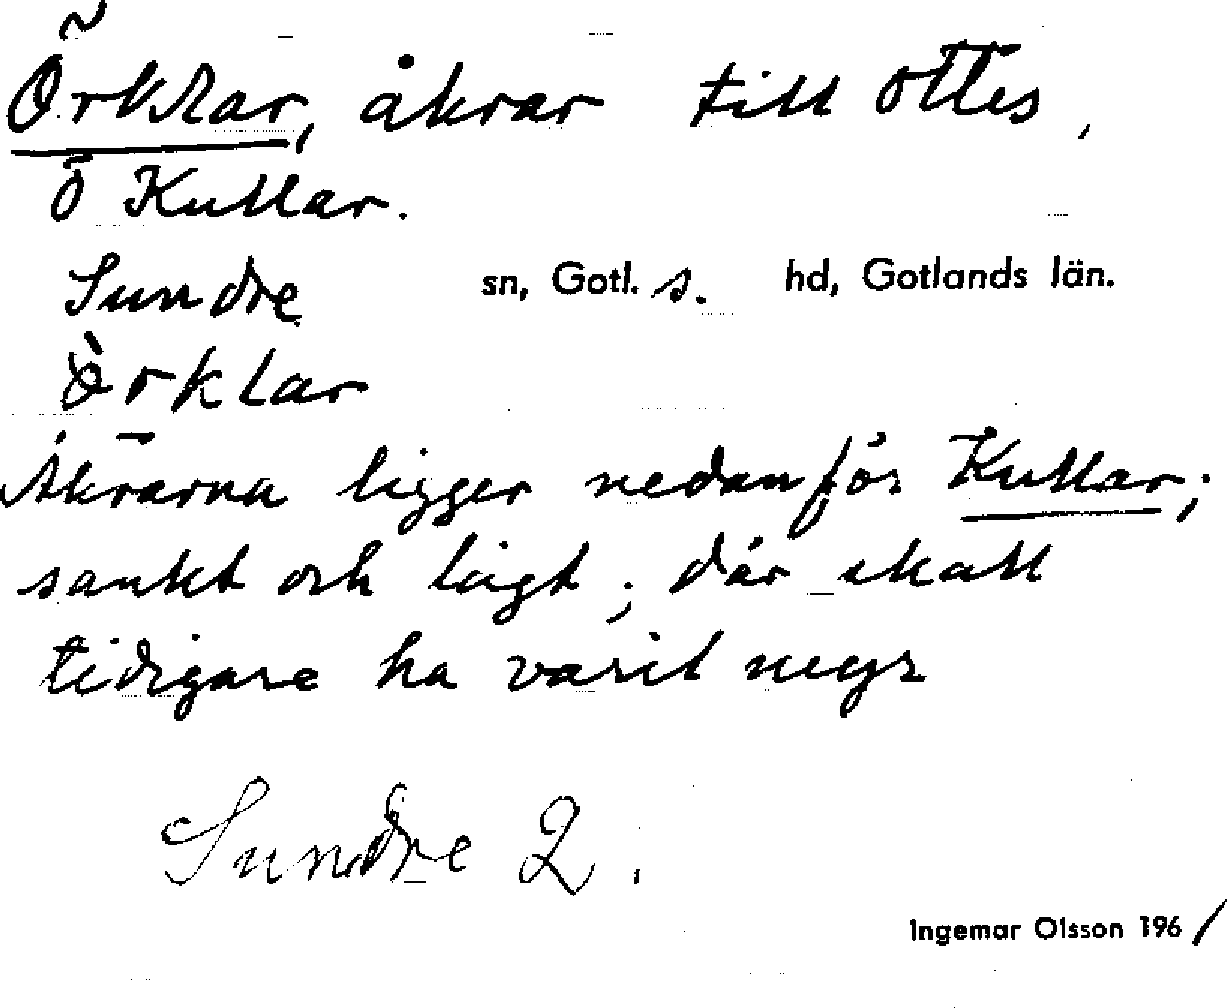 Örklar, åkrar till Ottes,
Ö Kullar.
Sundre sn, Gotl. s. hd, Gotlands län.
Òrklar
Åkrarna ligger nedanför Kullar;
sankt och lågt; där skall
tidigare ha varit myr
Sundre 2.
Ingemar Olsson 1961